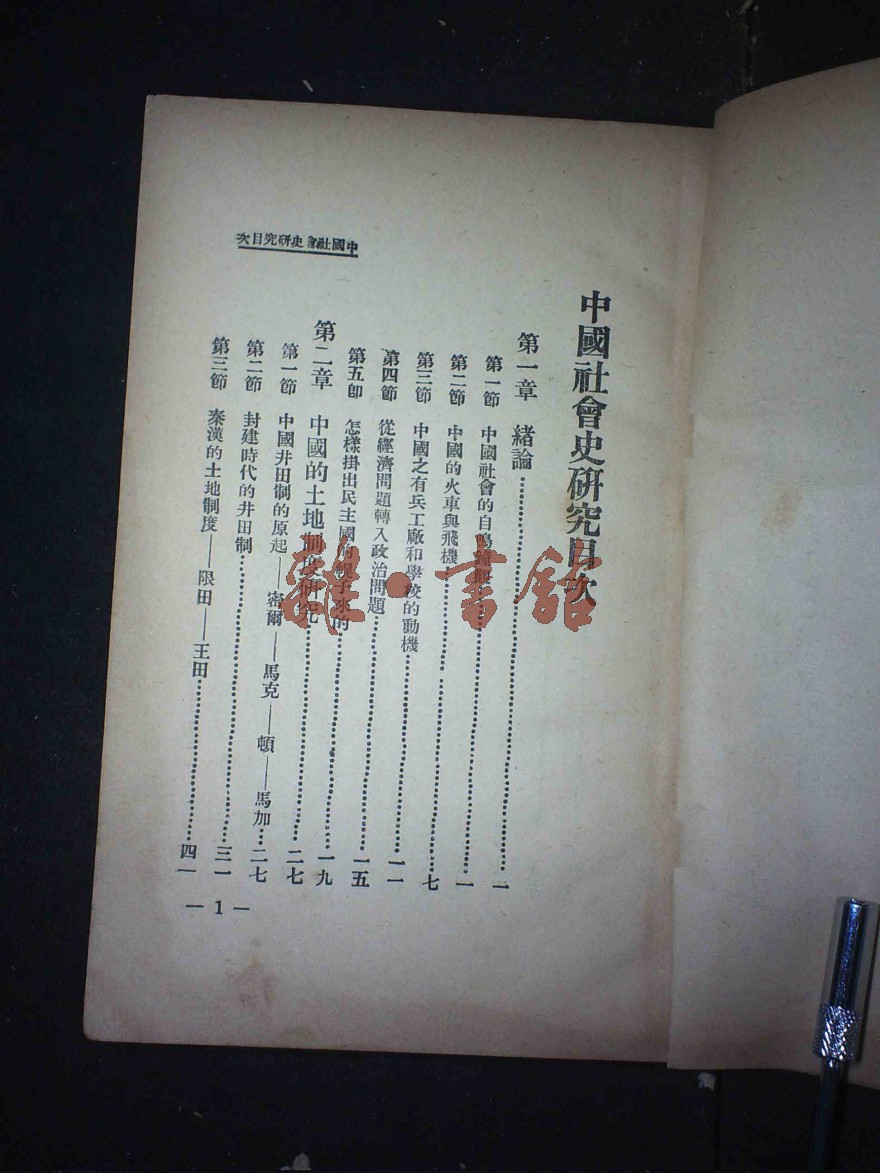 中國社會史研究目次
中國社會史研究目次
第一章 緒論…………一
第一節 中國社會的自鳴鐘觀…………一
第二節 中國的火車與飛機…………七
第三節 中國之有兵工廠和學校的動機…………一一
第四節 從經濟問題轉入政治問題…………一五
第五卽 怎樣掛出民主國的幌子來的…………一九
第二章 中國的土地制度研究…………二七
第一節 中國井田制的原起——密爾——馬克——頓——馬加…二七
第二節 封建時代的井田制…………三一
第三節 秦漢的土地制度——限田——王田…………四一
— 1 —
雜·書館